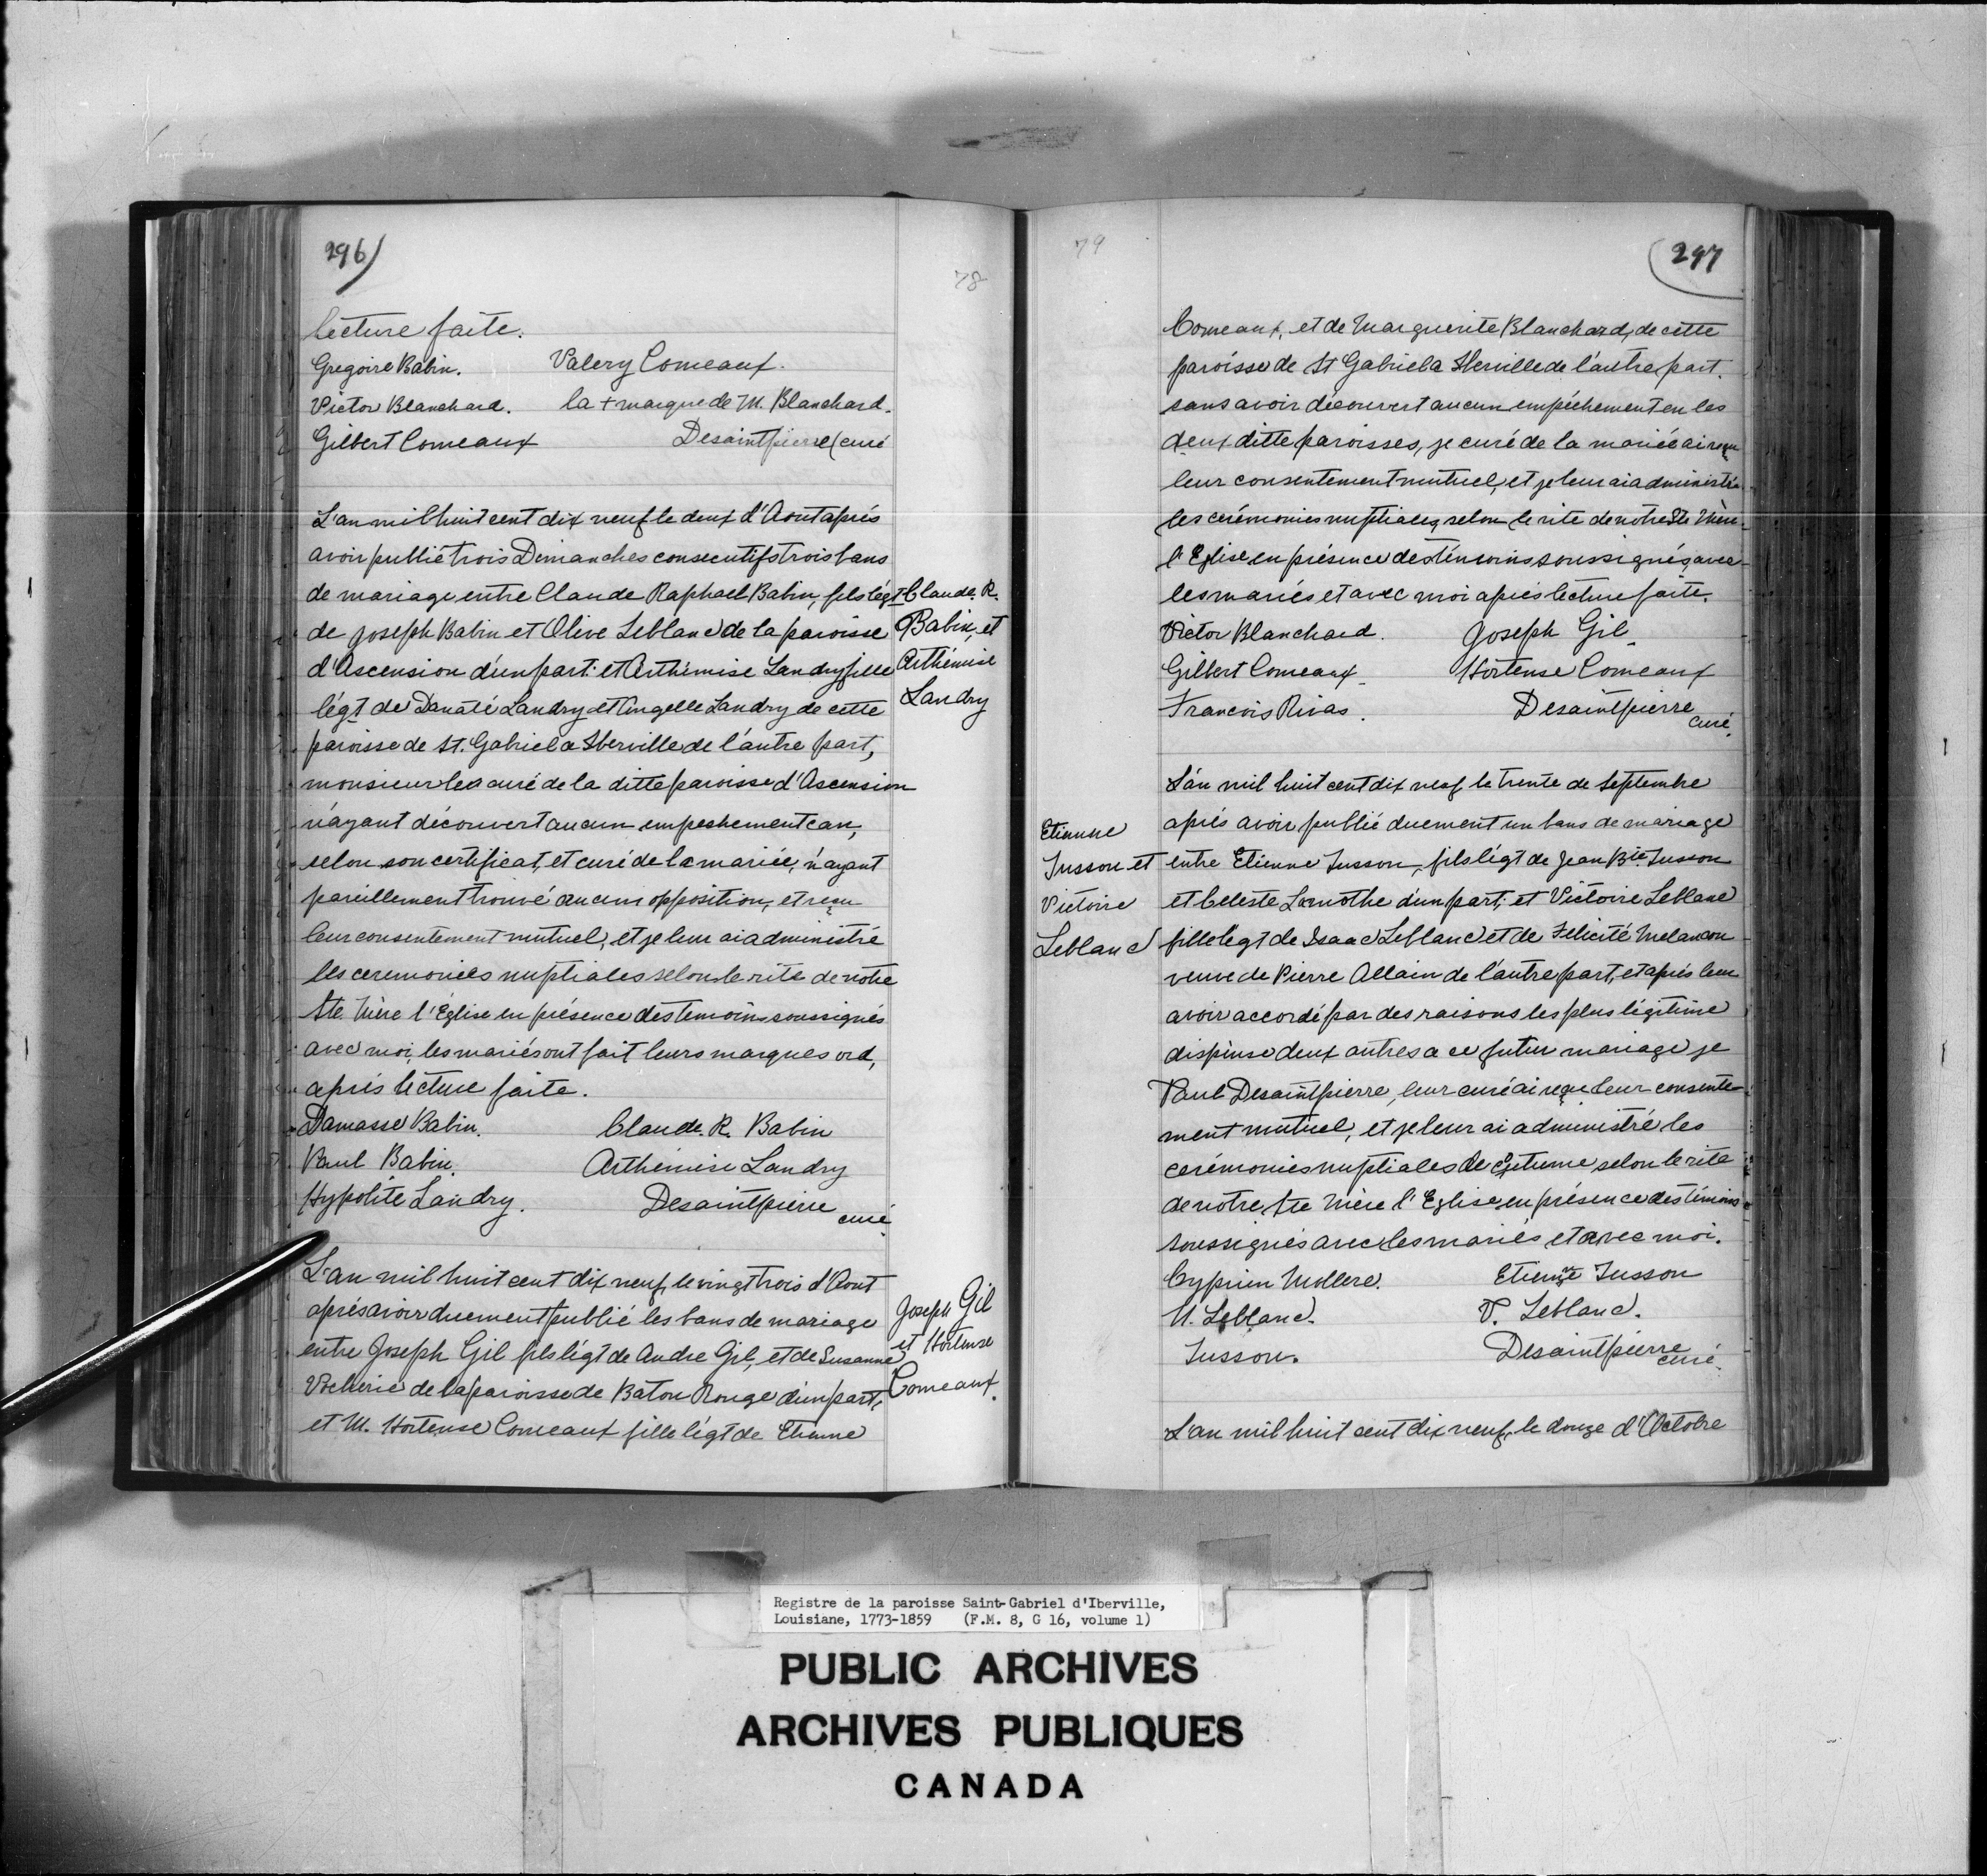 296)
78
lecture faite.
Gregoire Babin. Valery Comeaux.
Victor Blanchard. la + marque de M. Blanchard.
Gilbert Comeaux Desaintpierre (curé
L'an mil huit cent dix neuf le deux d'Aout aprés
avoir publié trois Dimanches consecutifs trois bans
de mariage entre Claude Raphael Babin, fils légt
de Joseph Babin et Olive Leblanc de la paroisse
d'Ascension d'un part. et Arthémise Landry fille
légt de Donate Landry et Angelle Landry de cette
paroisse de St. Gabriel a Iberville de l'autre part,
monsieur le curé de la ditte paroisse d'Ascension
n'ayant découvert aucun empeshement can,
selon son certificat, et curé de la mariée, n'ayant
pareillement trouvé aucun opposition, et reçu
leur consentement mutuel, et je leur ai administré
les ceremonies nuptiales selon le rite de notre
Ste. Mère l'Église en présence des temoins soussignés
avec moi, les mariés ont fait leurs marques ord,
aprés lecture faite.
Damasse Babin. Claude. R. Babin
Paul Babin. Arthémise Landry
Hypolite Landry. Desaintpierre curé
Claude. R.
Babin, et
Arthémise
Landry
L'an mil huit cent dix neuf, le vingt trois d'Aout
aprés avoir duement publié les bans de mariage
entre Joseph Gil fils légt de Andre Gil, et de Susanne
Vicherie de la paroisse de Baton Rouge d'un part,
et M. Hortense Comeaux fille légt de Etienne
Joseph Gil
et Hortense
Comeaux.
79
(297
Comeaux, et de Marguerite Blanchard, de cette
paroisse de St Gabriel a Iberville de l'autre part.
sans avoir découvert aucun empéchement en les
deux ditte paroisses, je curé de la mariée ai reçu
leur consentement mutuel, et je leur ai administré
les cerémonies nuptiales, selon le rite de notre Ste Mère
l'Eglise en présence des témoins soussignés, avec
les mariés et avec moi aprés lecture faite.
Victor Blanchard. Joseph Gil
Gilbert Comeaux Hortense Comeaux
Francois Rivas. Desaintpierre curé.
L'an mil huit cent dix neuf le trente de Septembre
aprés avoir publié duement un bans de mariage
entre Etienne Jusson, fils légt de Jean Bte. Jusson
et Celeste Lamothe d'un part, et Victoire Leblanc
fille legt de Isaac Leblanc et de Félicité Melancon
veuve de Pierre Allain de l'autre part, et aprés leur
avoir accordé par des raisons les plus légitime
dispense deux autres a ce futur mariage je
Paul Desaintpierre, leur curé ai reçu leur consente-
ment mutuel, et je leur ai administré les
cerémonies nuptiales de coutume selon le rite
de notre Ste Mère l'Eglise en présence des témoins
soussignés avec les mariés et avec moi.
Cyprien Mollere. Etienne Jusson
U. Leblanc. V. Leblanc.
Jusson. Desaintpierre curé.
Etienne
Jusson et
Victoire
Leblanc
L'an mil huit cent dix neuf, le douze d'Octobre
Registre de la paroisse Saint-Gabriel d'Iberville,
Louisiane, 1773-1859 (F.M. 8, G 16, volume 1)
PUBLIC ARCHIVES
ARCHIVES PUBLIQUES
CANADA